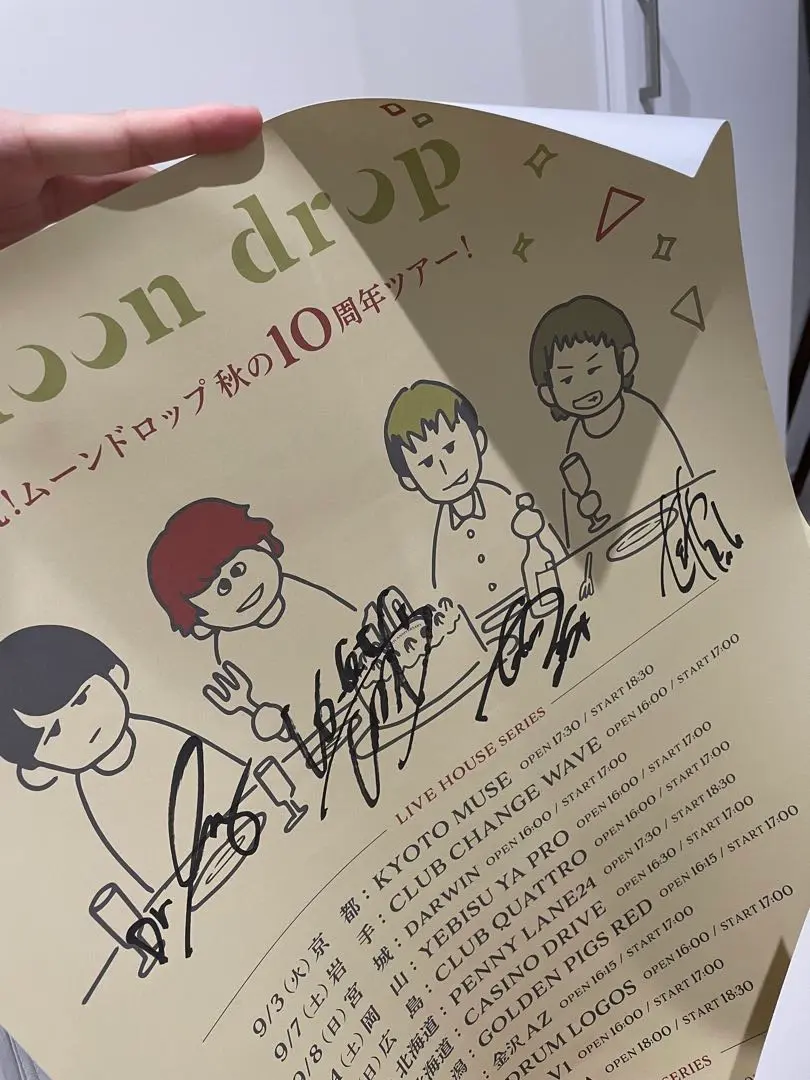 oon drop
!ムーンドロップ 秋の10周年ツアー!
Dr
LIVE HOUSE SERIES
9/3 (火) 京 都 : KYOTO MUSE OPEN 17:30 / START 18:30
9/7 (土) 岩 手 : CLUB CHANGE WAVE OPEN 16:00 / START 17:00
9/8 (日) 宮 城 : DARWIN OPEN 16:00 / START 17:00
4 (土) 岡 山 : YEBISU YA PRO OPEN 16:00 / START 17:00
(日) 広 島 : CLUB QUATTRO OPEN 16:00 / START 17:00
北海道 : PENNY LANE24 OPEN 17:30 / START 18:30
北海道 : CASINO DRIVE OPEN 16:30 / START 17:00
潟 : GOLDEN PIGS RED OPEN 16:15 / START 17:00
金沢AZ OPEN 16:15 / START 17:00
DRUM LOGOS OPEN 16:00 / START 17:00
V1 OPEN 16:00 / START 17:00
A OPEN 18:00 / START 18:30
SERIES